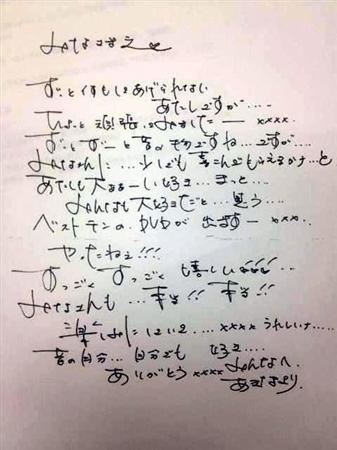 みなさまえ
あげられない
あたしですが‥‥
ちょっと頑張ってみました— xxxx
ずーっとずーっと昔のモノですね…ですが…
みなさんに…少しでも喜んでもらえるかナ…と
あたしも 好き…きっと…
みんなも大好きだと…思う…
ベストテンの、DVDが出ます— xxx
やったねぇ!!!
すっごくすっごく嬉しい!!!
みなさんも…本当!! 本当!!
xxxx うれしいナ….
昔の自分…自分でも 好き…
ありがとう xxxx みんなへ。
あきなより